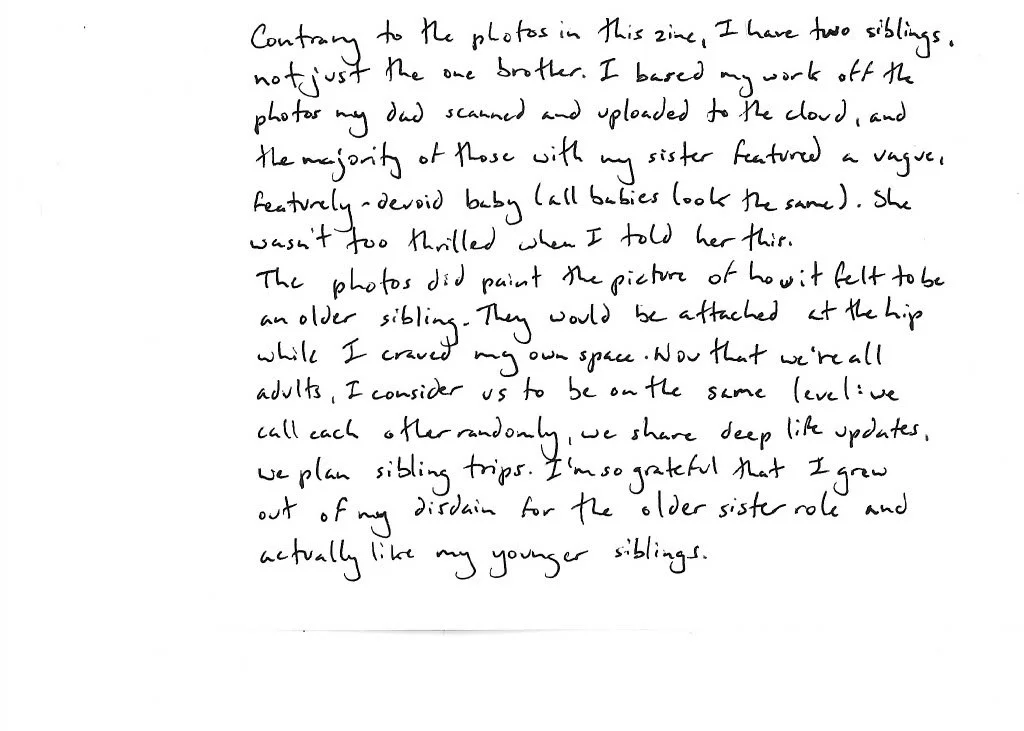 Contrary to the photos in this zine, I have two siblings,
not just the one brother. I based my work off the
photos my dad scanned and uploaded to the cloud, and
the majority of those with my sister featured a vague,
featurely-devoid baby (all babies look the same). She
wasn't too thrilled when I told her this.
The photos did paint the picture of how it felt to be
an older sibling. They would be attached at the hip
while I craved my own space. Now that we're all
adults, I consider us to be on the same level: we
call each other randomly, we share deep life updates,
we plan sibling trips. I'm so grateful that I grew
out of my disdain for the older sister role and
actually like my younger siblings.